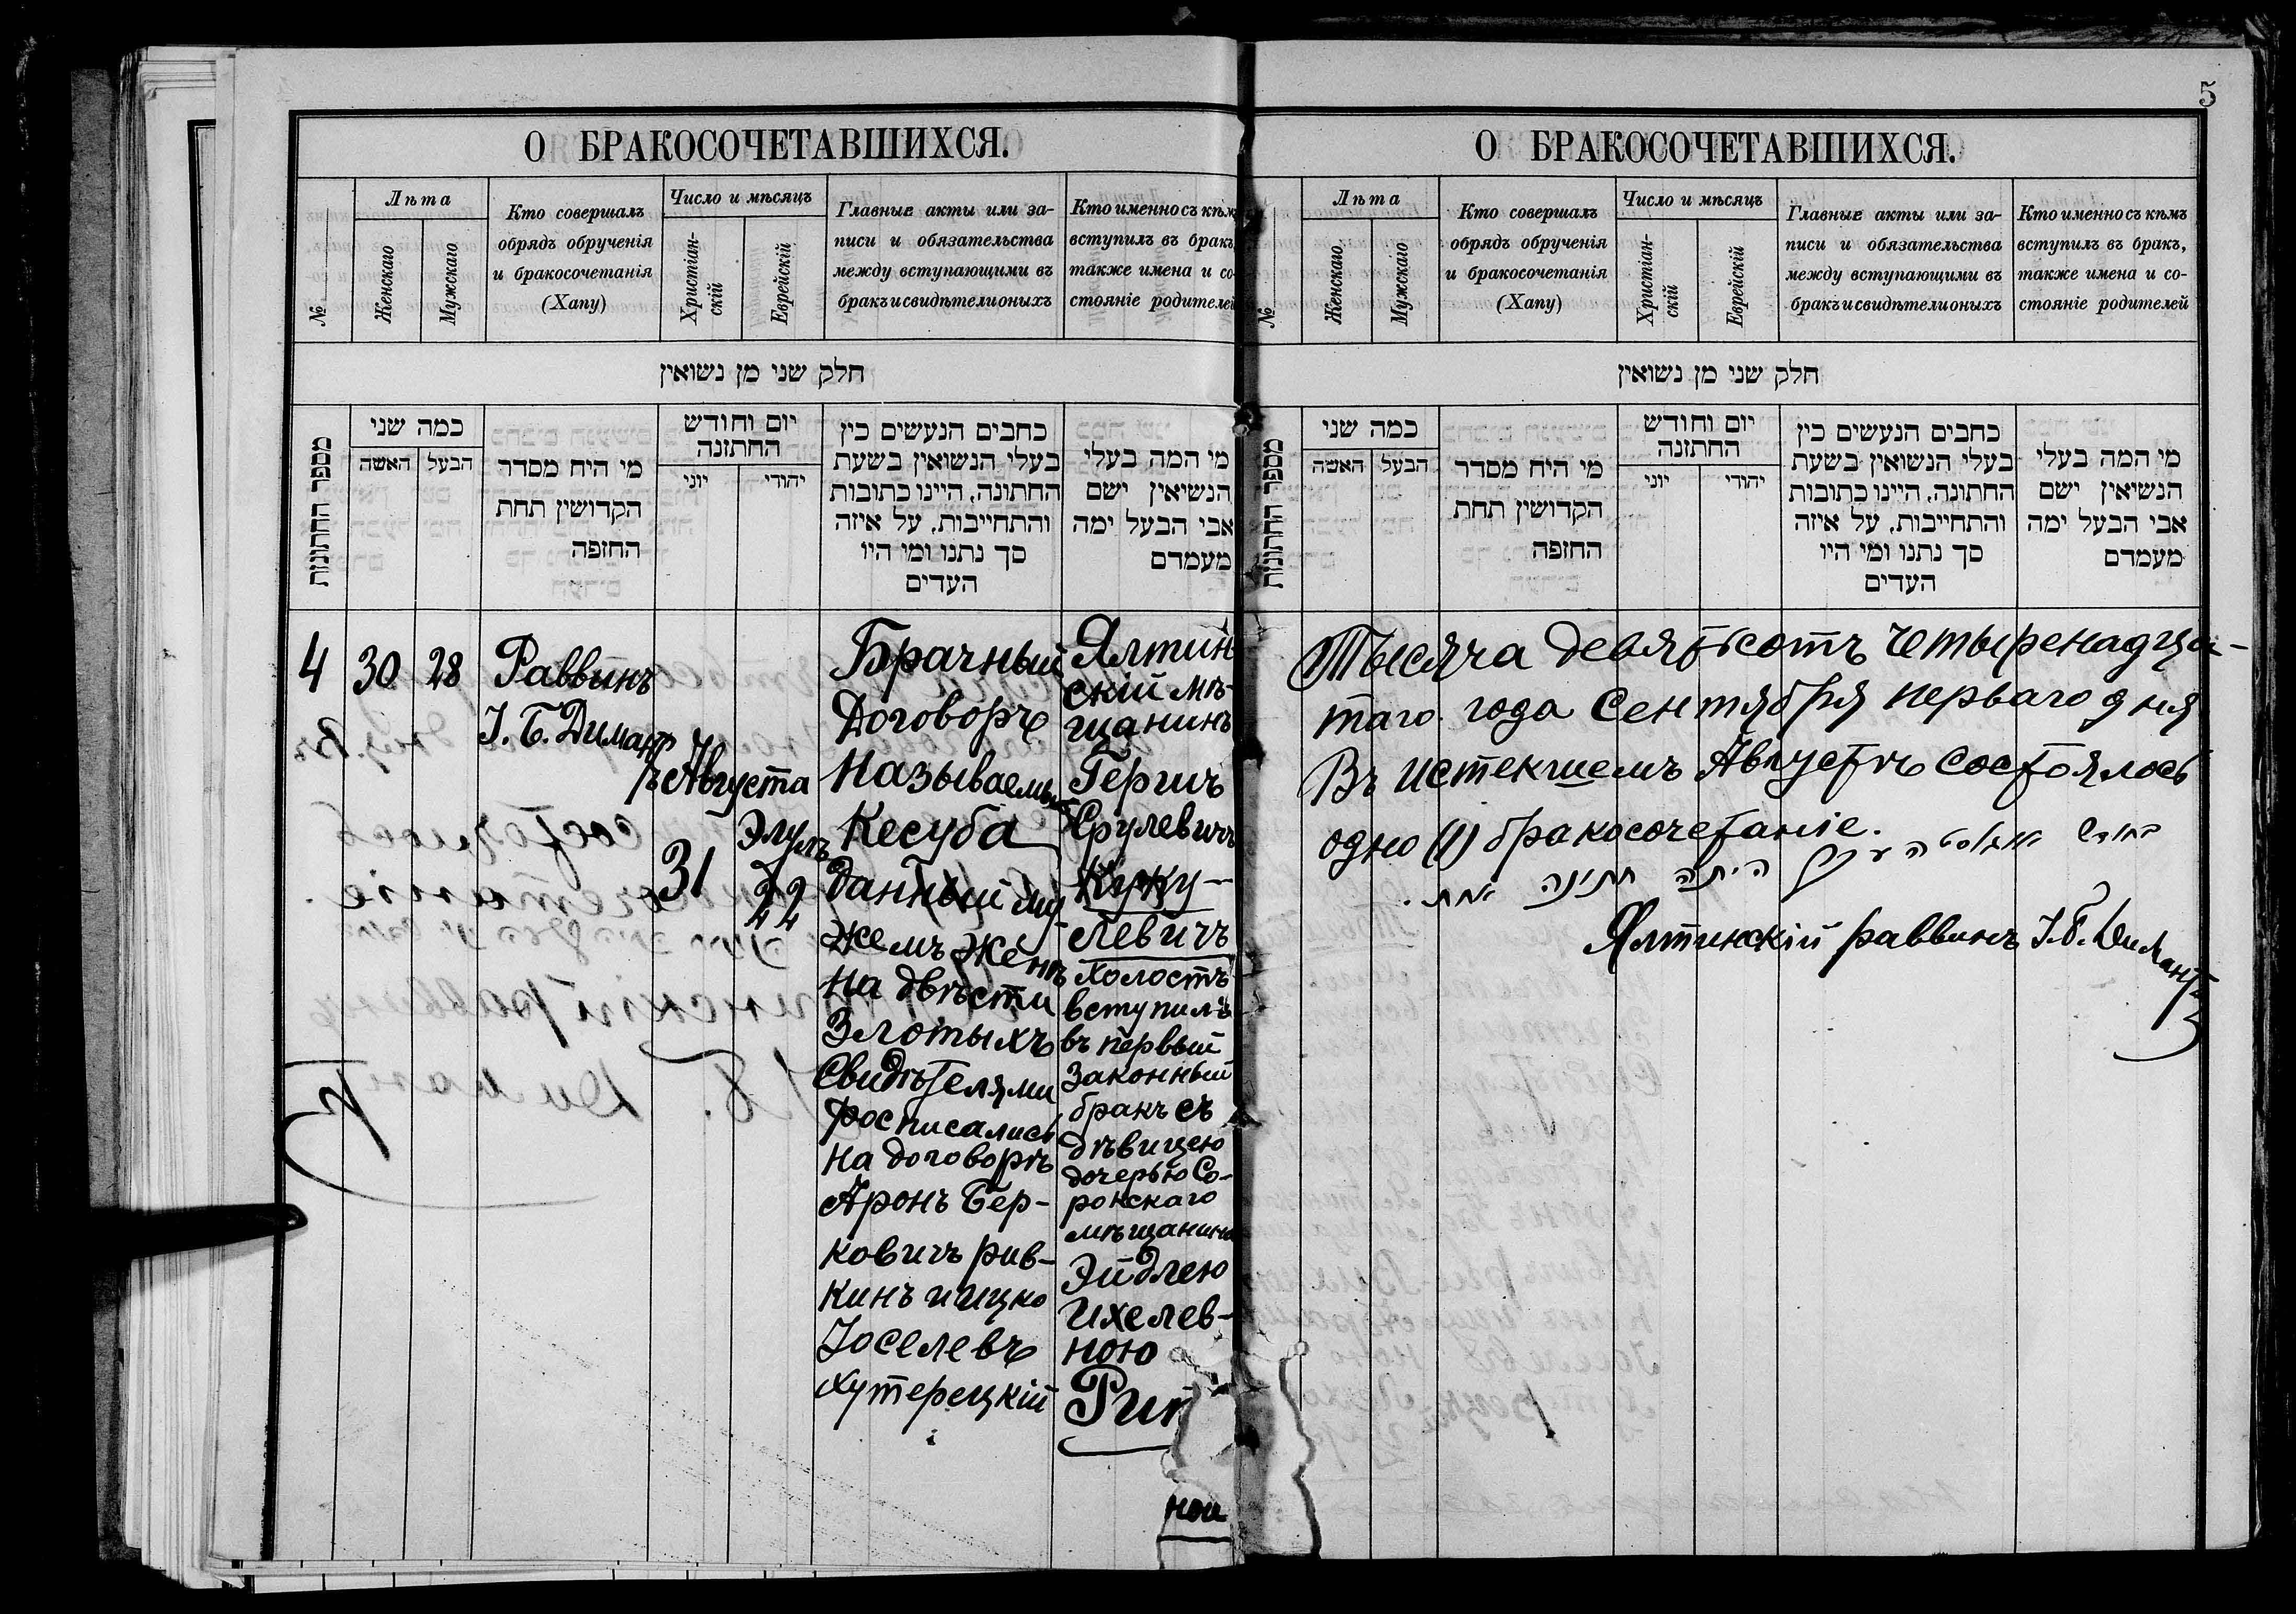 5
О БРАКОСОЧЕТАВШИХСЯ.
№
Лѣта
Женскаго
Мужскаго
Кто совершалъ
обрядъ обрученія
и бракосочетанія
(Хапу)
Число и мѣсяцъ
Христіан-
скій
Еврейскій
Главные акты или за-
писи и обязательства
между вступающими въ
бракъ и свидѣтели оныхъ
Кто именно съ кѣмъ
вступилъ въ бракъ
также имена и со-
стояніе родителей
חלק שני מן נשואין
מספר החתונות
כמה שני
האשה
הבעל
מי היח מסדר
הקדושין תחת
החופה
יום וחודש
החתונה
יוני
יהודי
כתבים הנעשים בין
בעלי הנשואין בשעת
החתונה, היינו כתובות
והתחייבות, על איזה
סך נתנו ומי היו
העדים
מי המה בעלי
הנשיאין ישם
אבי הבעל ימה
מעמדם
4
30
28
Раввинъ
І. Б. Димантъ
Августа
31
Элулъ
22
Брачный
Договоръ
Называемый
Кесуба
данный му-
жемъ женѣ
на двѣсти
Злотыхъ
Свидѣтелями
росписались
на договорѣ
Аронъ Бер-
ковичъ Рив-
кинъ и Ицко
Іоселевъ
Хутерецкій
Ялтин
скій мѣ-
щанинъ
Гершъ
Срулевичъ
Куку-
левичъ
холостъ
вступилъ
въ первый
законный
бракъ съ
дѣвицею
дочерью Со-
рокскаго
мѣщанина
Эйдлею
Ихелев-
ною
ной
О БРАКОСОЧЕТАВШИХСЯ.
№
Лѣта
Женскаго
Мужскаго
Кто совершалъ
обрядъ обрученія
и бракосочетанія
(Хапу)
Число и мѣсяцъ
Христіан-
скій
Еврейскій
Главные акты или за-
писи и обязательства
между вступающими въ
бракъ и свидѣтели оныхъ
Кто именно съ кѣмъ
вступилъ въ бракъ,
также имена и со-
стояніе родителей
חלק שני מן נשואין
מספר החתונות
כמה שני
האשה
הבעל
מי היח מסדר
הקדושין תחת
החופה
יום וחודש
החתונה
יוני
יהודי
כתבים הנעשים בין
בעלי הנשואין בשעת
החתונה, היינו כתובות
והתחייבות, על איזה
סך נתנו ומי היו
העדים
מי המה בעלי
הנשיאין ישם
אבי הבעל ימה
מעמדם
Тысяча девятьсотъ четыренадца-
таго года Сентября перваго дня
Въ истекшемъ Августѣ состоялось
одно (1) бракосочетаніе.
היתה חתונה אחת.
Ялтинскій раввинъ І. Б. Димантъ